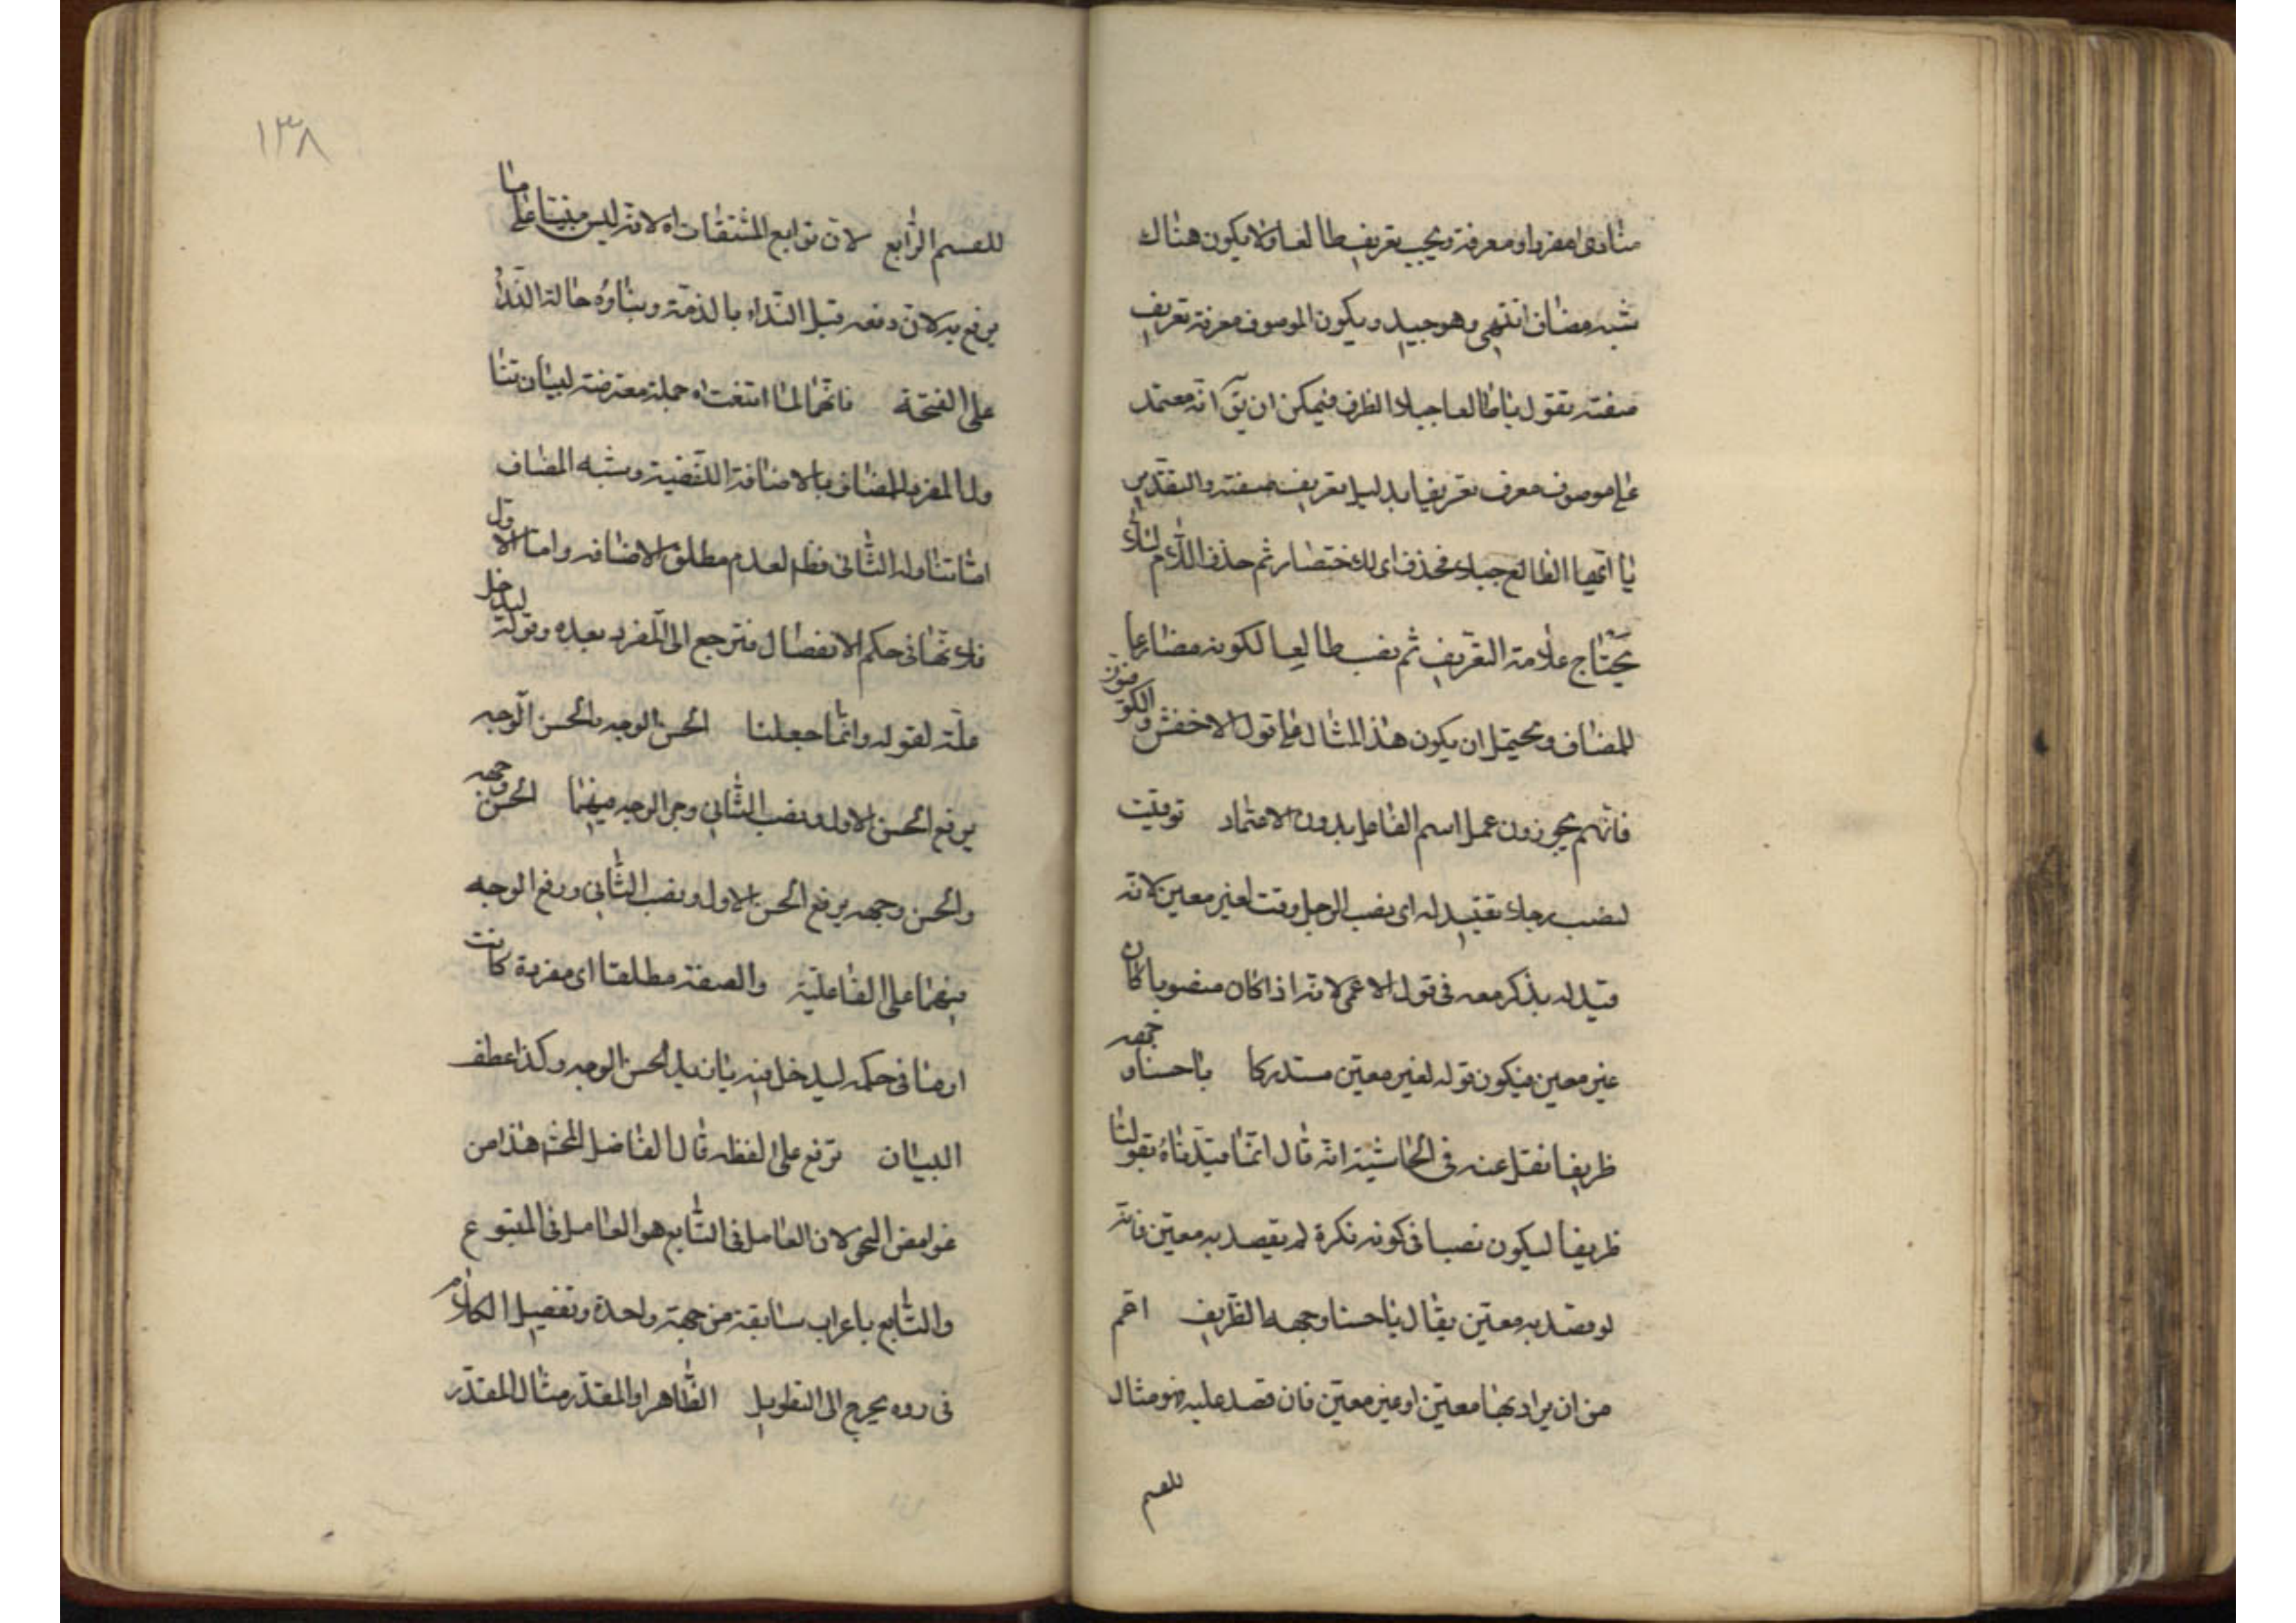 منادى مفردا ومعرفة ويجب تعريف طالعا ولا يكون هناك
شبه مضاف انتهى وهو جيد ويكون الموصوف معرفة تعريف
صفته تقول يا طالعا جبلا الظرف فيمكن ان يق انه معتمد
على موصوف معرف تعريفا بدليل تعريف صفته والتقدير
يا ايها الطالع جبلا فحذف اى للاختصار ثم حذف اللام لئلا
يحتاج علامة التعريف ثم نصب طالعا لكونه مضارعا
للمضاف ويحتمل ان يكون هذا المثال على قول الاخفش والكوفيين
فانهم يجوزون عمل اسم الفاعل بدون الاعتماد توقيت
لنصب رجلا تقييد له اى نصب الرجل وقت لغير معين لانه
قيد له يذكر معه فى قول الاعمى لانه اذا كان منصوبا كان
غير معين فيكون قوله لغير معين مستدركا يا حسنا وجهه
ظريفا نقل عنه فى الحاشية انه قال انما قيدناه بقولنا
ظريفا ليكون نصبا فى كونه نكرة لم يقصد به معين فانه
لو قصد به معين يقال يا حسنا وجهه الظريف اعم
من ان يراد بها معين او غير معين فان قصد عليه فهو مثال
للقسم
١٣٨
للقسم الرابع لان توابع المشتقات اه لانه ليس مبنيا على ما
يرفع به لان رفعه قبل النداء بالذمة وبناؤه حالة النداء
على الفتحة فانهما لما انتفت اه جملة معترضة لبيان
ولما المفرد المضاف بالاضافة اللفظية وشبه المضاف
اما تناوله الثانى فظ لعدم مطلق الاضافه واما الاول
فلانها فى حكم الانفصال فترجع الى المفرد بعده وقوله ليدخل
علة لقوله وانما جعلنا الحسن الوجه والحسن الوجه
برفع الحسن الاول ونصب الثانى وجر الوجه فيهما الحسن وجهه
والحسن وجهه برفع الحسن الاول ونصب الثانى ورفع الوجه
فيهما على الفاعلية والصفة مطلقا اى مفردة كانت
او ما فى حكمه ليدخل فيه يا زيد الحسن الوجه وكذا عطف
البيان ترفع على لفظه قال الفاضل المحشى هذا من
غوامض النحو لان العامل فى التابع هو العامل فى المتبوع
والتابع باعراب سابقه من جهة واحدة وتفصيل الكلام
فى رده يحرج الى التطويل الظاهر او المقدر مثال المقدر